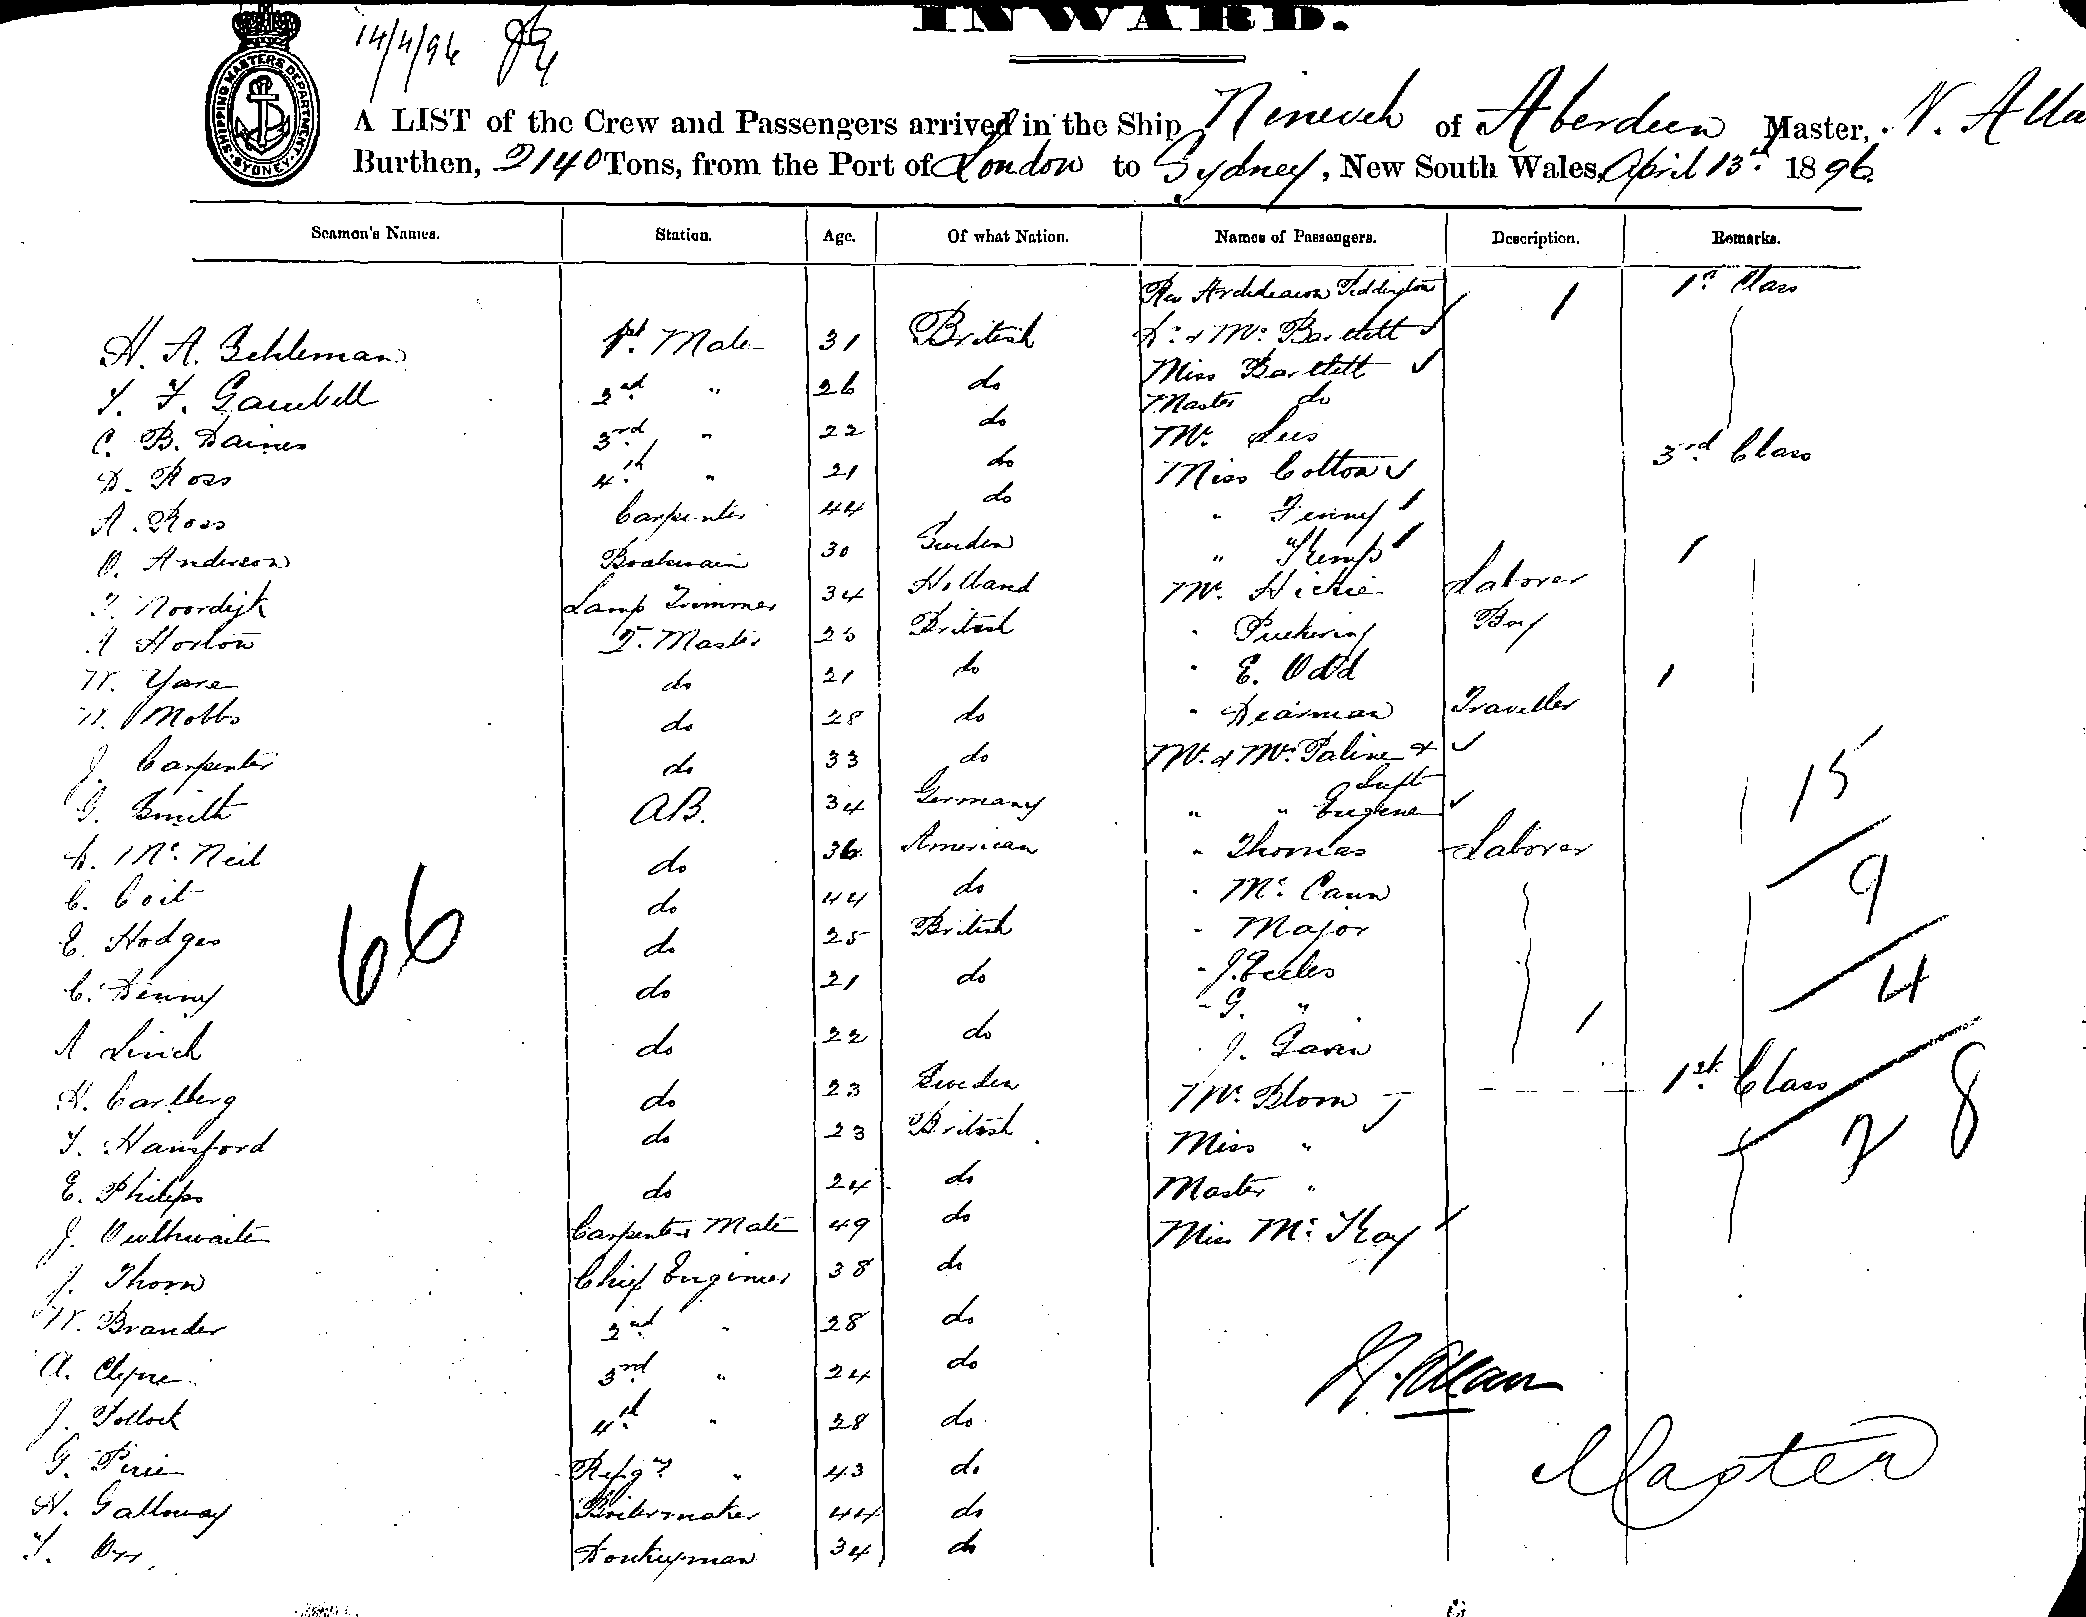 INWARD.
14/4/96
SHIPPING MASTERS DEPARTMENT SYDNEY
A LIST of the Crew and Passengers arrived in the Ship Nineveh of Aberdeen Master, N. Alla
Burthen, 2140 Tons, from the Port of London to Sydney, New South Wales, April 13th 1896
Seamen's Names. Station. Age. Of what Nation. Names of Passengers. Description. Remarks.
Rev Archdeacon Tiddington 1 1st Class
H. A. Schleman 1st Mate 31 British Dr & Mrs Bartlett
Miss Bartlett
T. F. Gambell 2nd " 26 do Master do
C. B. Daines 3rd " 22 do Mr. Lees
D. Ross 4th " 21 do Miss Cotton 3rd Class
A. Ross Carpenter 44 do " Tenny
O. Anderson Boatswain 30 Sweden " Kemp 1
T. Noordijk Lamp Trimmer 34 Holland Mr. Hickie Laborer
A Horton Q. Master 25 British " Puckering Boy
W. Yare do 21 do " E. Odd 1
W. Mobbs do 28 do " Dearman Traveller
J. Carpenter do 33 do Mr. & Mrs Paline &
Inft 15
G. Smith AB. 34 Germany " " Eugene
D. Mc. Neil do 36 American " Thomas Laborer
C. Coit do 44 do " Mc. Cann 9
E. Hodges do 25 British " Major
66
C. Denny do 21 do " J. Eccles 4
" G. "
A Linch do 22 do " J. Gavin 1
H. Carlberg do 23 Sweden Mr. Blom 1st. Class
T. Hansford do 23 British Miss " 28
E. Philips do 24 do Master "
J. Outhwaite Carpenters Mate 49 do Miss Mc. Kay
J. Thorn Chief Engineer 38 do
W. Brander 2nd " 28 do
A. Clyne 3rd " 24 do
N. Allan
J. Pollock 4th " 28 do
Master
G. Pirie Refrg " 43 do
H. Galloway Boilermaker 44 do
T. Orr Donkeyman 34 do